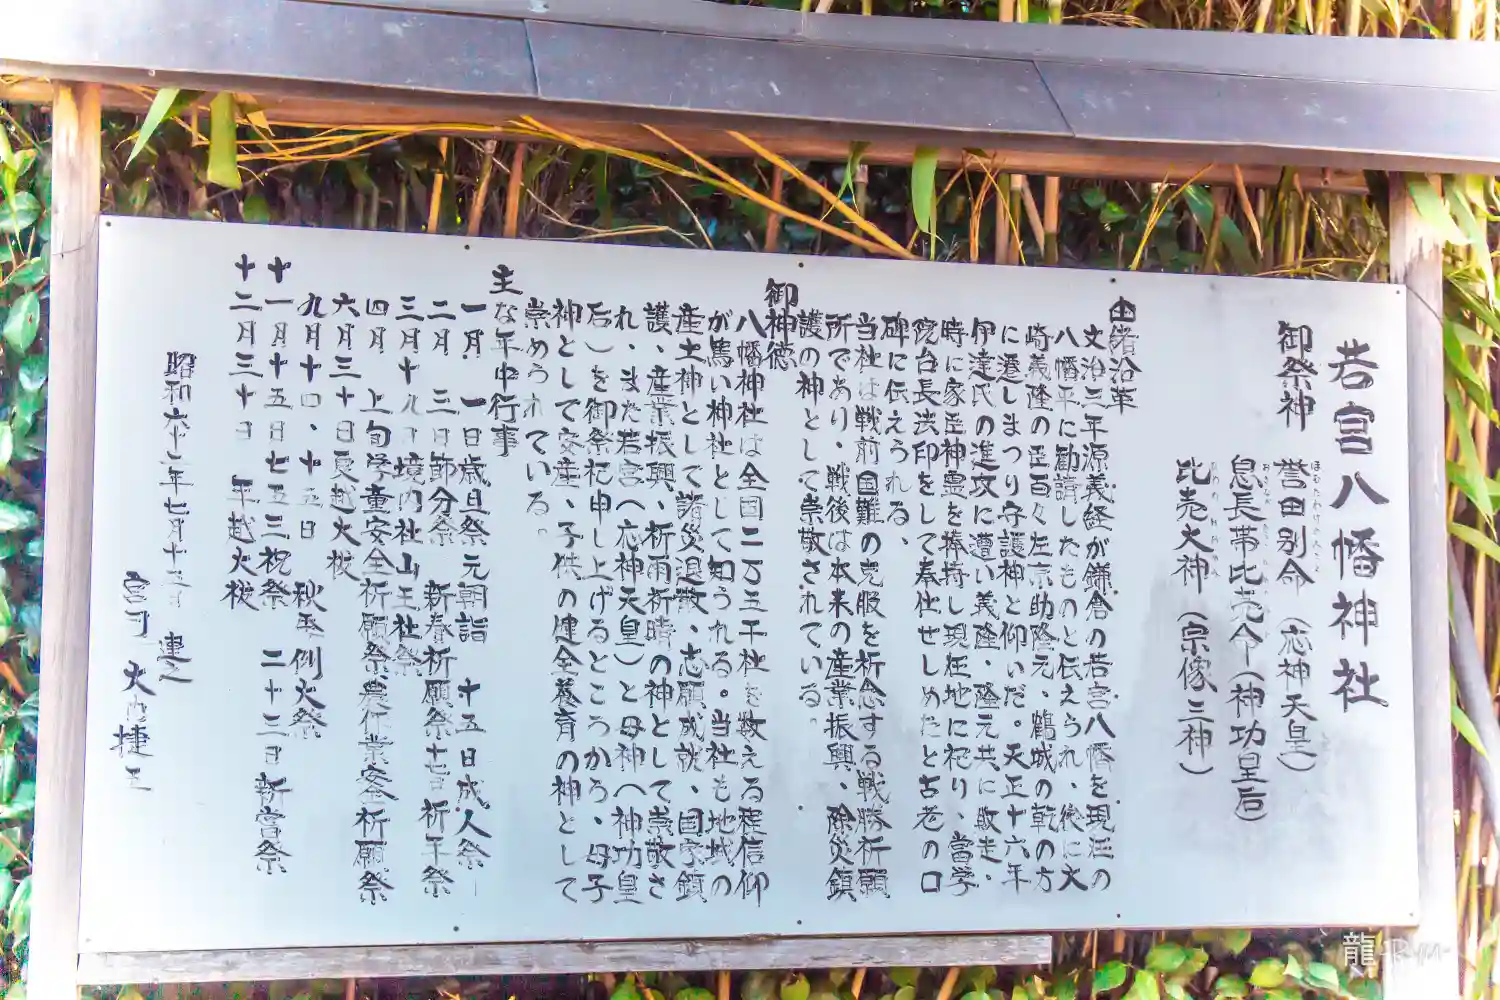 若宮八幡神社
御祭神 誉田別命（応神天皇）
息長帯比売命（神功皇后）
比売大神（宗像三神）
由緒沿革
文治三年源義経が鎌倉の若宮八幡を現在の
八幡平に勧請したものと伝えられ、後に大
崎義隆の臣百々左京助隆元、鶴城の乾の方
に遷しまつり守護神と仰いだ。天正十六年
伊達氏の進攻に遭い義隆・隆元共に敗走、
時に家臣神霊を捧持し現在地に祀り、當学
院台長法印をして奉仕せしめたと古老の口
碑に伝えられる、
当社は戦前国難の克服を祈念する戦勝祈願
所であり、戦後は本来の産業振興、除災鎮
護の神として崇敬されている。
御神徳
八幡神社は全国二万五千社を数える程信仰
が篤い神社として知られる。当社も地域の
産土神として諸災退散、志願成就、国家鎮
護、産業振興、祈雨祈晴の神として崇敬さ
れ、また若宮へ応神天皇）と母神へ神功皇
后）を御祭祀申し上げるところから、母子
神として安産、子供の健全養育の神として
崇められている。
主な年中行事
一月 一日歳旦祭元朝詣 十五日成人祭
二月 三日節分祭 新春祈願祭十七日祈年祭
三月十九日境内社山王社祭
四月 上旬学童安全祈願祭農作業安全祈願祭
六月三十日夏越大祓
九月十四、十五日 秋季例大祭
十一月十五日七五三祝祭 二十三日新嘗祭
十二月三十日 年越大祓
昭和六十 年七月十五日 建之
宮司 大内捷
龍 R.M